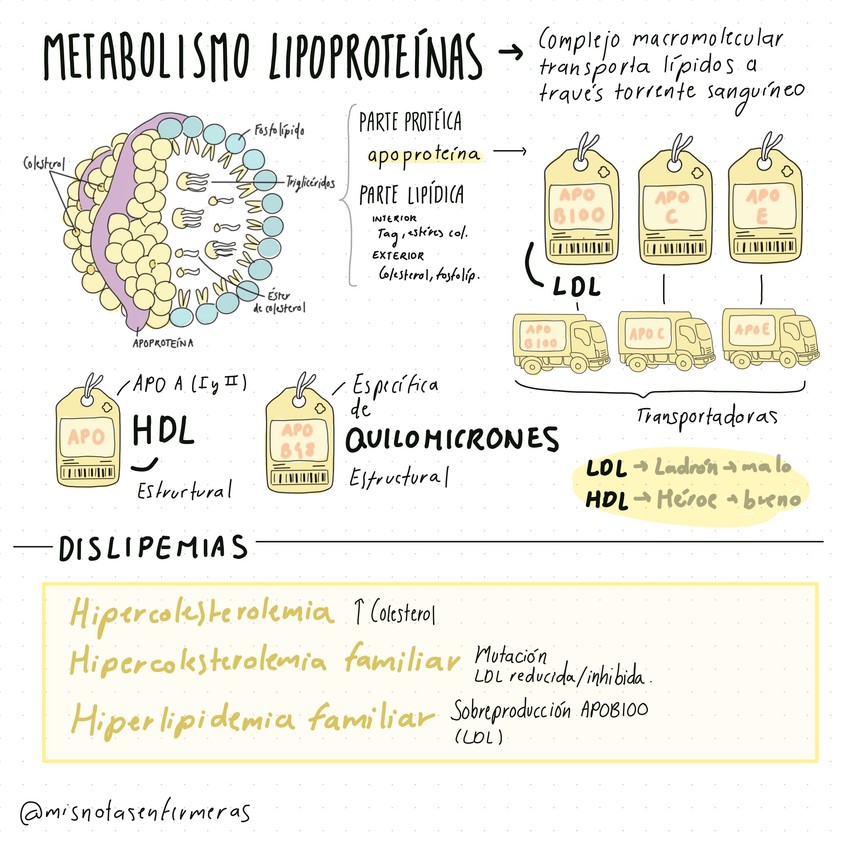 METABOLISMO LIPOPROTEÍNAS →
Complejo macromolecular
transporta lípidos a
través torrente sanguíneo
Fosfolípido
Colesterol
Triglicéridos
Éster
de colesterol
APOPROTEÍNA
PARTE PROTÉICA
apoproteína →
PARTE LIPÍDICA
INTERIOR
Tag, estéres col.
EXTERIOR
Colesterol, fosfolíp.
APO
B100
APO
C
APO
E
LDL
APO
B100
APO C
APO E
Transportadoras
APO
APO A (I y II)
HDL
Estrurtural
APO
B48
Específica
de
QUILOMICRONES
Estructural
LDL → Ladrón → malo
HDL → Héroe → bueno
DISLIPEMIAS
Hipercolesterolemia ↑ Colesterol
Hipercolesterolemia familiar Mutación
LDL reducida/inhibida.
Hiperlipidemia familiar Sobreproducción APOB100
(LDL)
@misnotasenfermeras